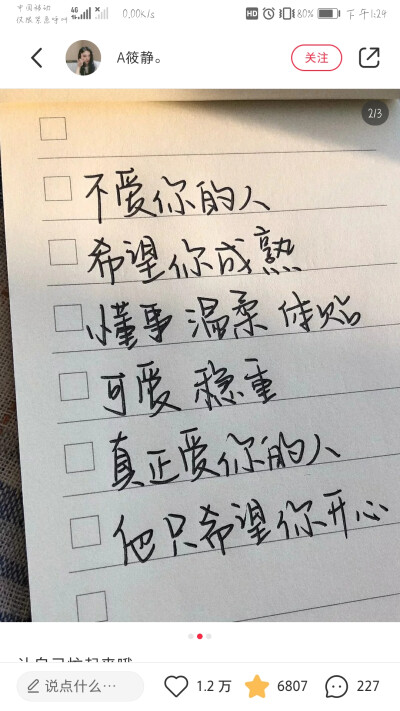 中国移动
仅限紧急呼叫
4G
0.00K/s
HD
80%
下午1:29
A筱静。
关注
2/3
不爱你的人
希望你成熟
懂事 温柔 体贴
可爱 稳重
真正爱你的人
他只希望你开心
让自己忙起来哦
说点什么…
1.2万
6807
227